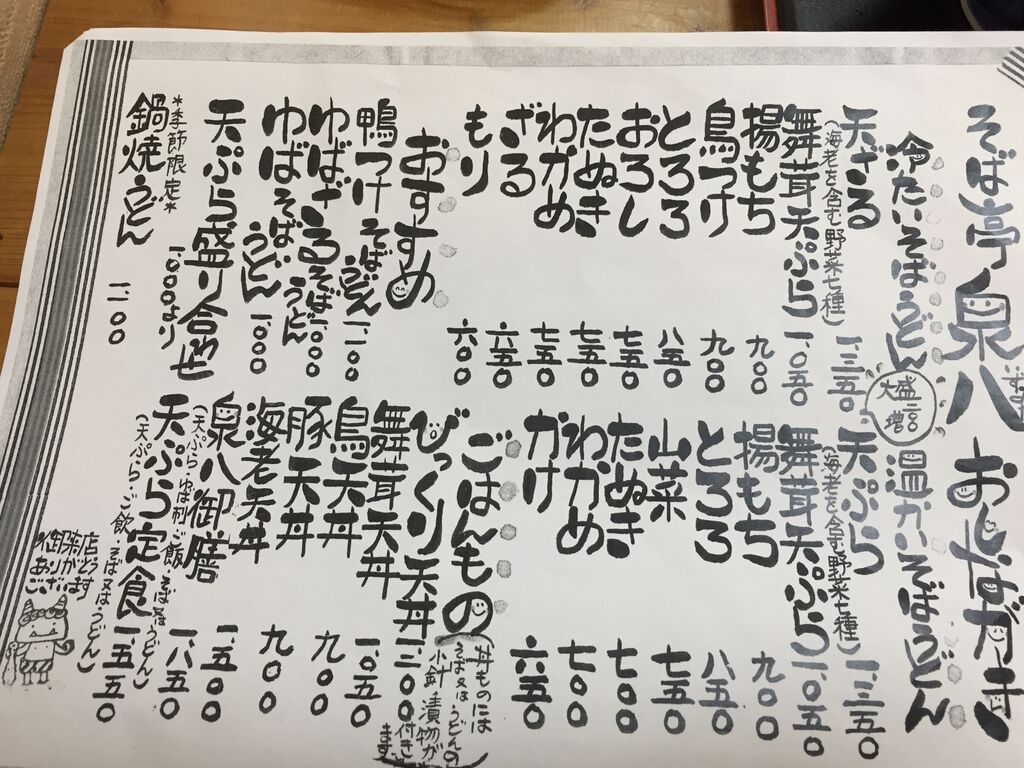 そば亭 泉八 おしながき
冷たいそばうどん
大盛二〇〇増
天ざる 一、三五〇
(海老を含む野菜七種)
舞茸天ぷら 一、〇五〇
揚もち 九〇〇
鳥つけ 九〇〇
とろろ 八五〇
おろし 七五〇
たぬき 七五〇
わかめ 七五〇
ざる 六五〇
もり 六〇〇
温かいそばうどん
天ぷら 一、三五〇
(海老を含む野菜七種)
舞茸天ぷら 一、〇五〇
揚もち 九〇〇
とろろ 八五〇
山菜 七五〇
たぬき 七〇〇
わかめ 七〇〇
かけ 六五〇
おすすめ
鴨つけ そば うどん 一、一〇〇
ゆばざる そば うどん 一、〇〇〇
ゆばそば うどん 一、〇〇〇
天ぷら盛り合わせ 一、〇〇〇より
*季節限定*
鍋焼うどん 一、一〇〇
ごはんもの
丼ものには
そば又はうどんの
小鉢 漬物が
付きます
びっくり天丼 一、二〇〇
舞茸天丼 一、〇五〇
鳥天丼 九〇〇
豚天丼 九〇〇
海老天丼 一、五〇〇
泉八御膳 一、八五〇
(天ぷら・ゆば刺・ご飯・そば又はうどん)
天ぷら定食 一、五五〇
(天ぷら・ご飯・そば又はうどん)
御来店
ありがとう
ございます